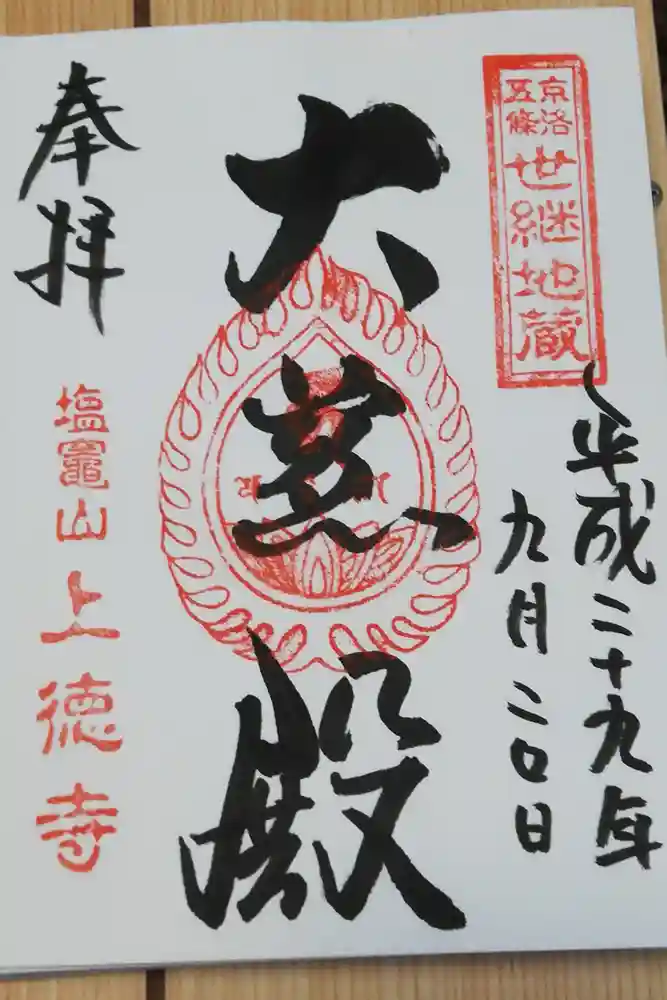 京洛
五條
世継地蔵
平成二十九年
九月二〇日
大慈殿
奉拝
塩竈山上徳寺